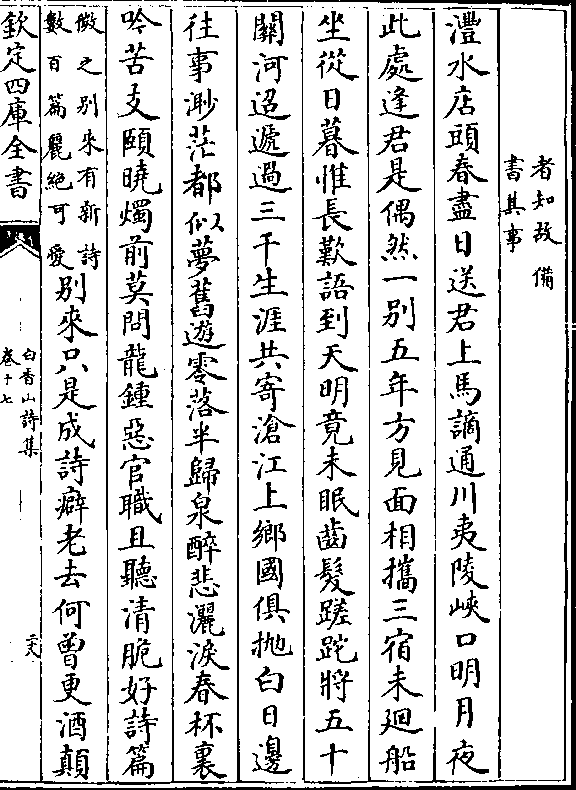 者知故備
書其事
灃水店頭春盡日送君上馬謫通川夷陵峽口明月夜
此處逢君是偶然一別五年方見面相攜三宿未迴船
坐從日暮惟長歎語到天明竟未眠齒髮蹉跎將五十
關河迢遞過三千生涯共寄滄江上鄉國俱抛白日邊
往事渺茫都似夢舊遊零落半歸泉醉悲灑淚春杯裏
吟苦支頤曉燭前莫問龍鍾惡官職且聽清脆好詩篇
微之別來有新詩
數百篇麗絶可愛
別來只是成詩癖老去何曾更酒顛
欽定四庫全書
白香山詩集
卷十七